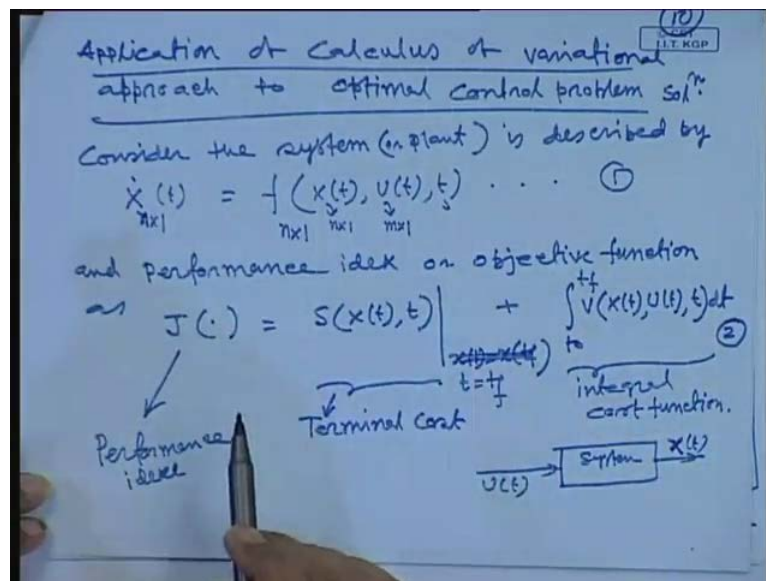 10
I.I.T. KGP
Application of Calculus of variational
approach to optimal control problem Solⁿ.
Consider the system (or plant) is described by
Ẋ(t) = f(X(t), U(t), t) . . . ①
n×1 n×1 n×1 m×1
and performance idex or objective function
as J(·) = S(X(t), t)| + ∫ V(X(t), U(t), t)dt ②
tf
t0
t = tf
Terminal Cost
integral
cost function.
Performance
idex
U(t)
System
X(t)